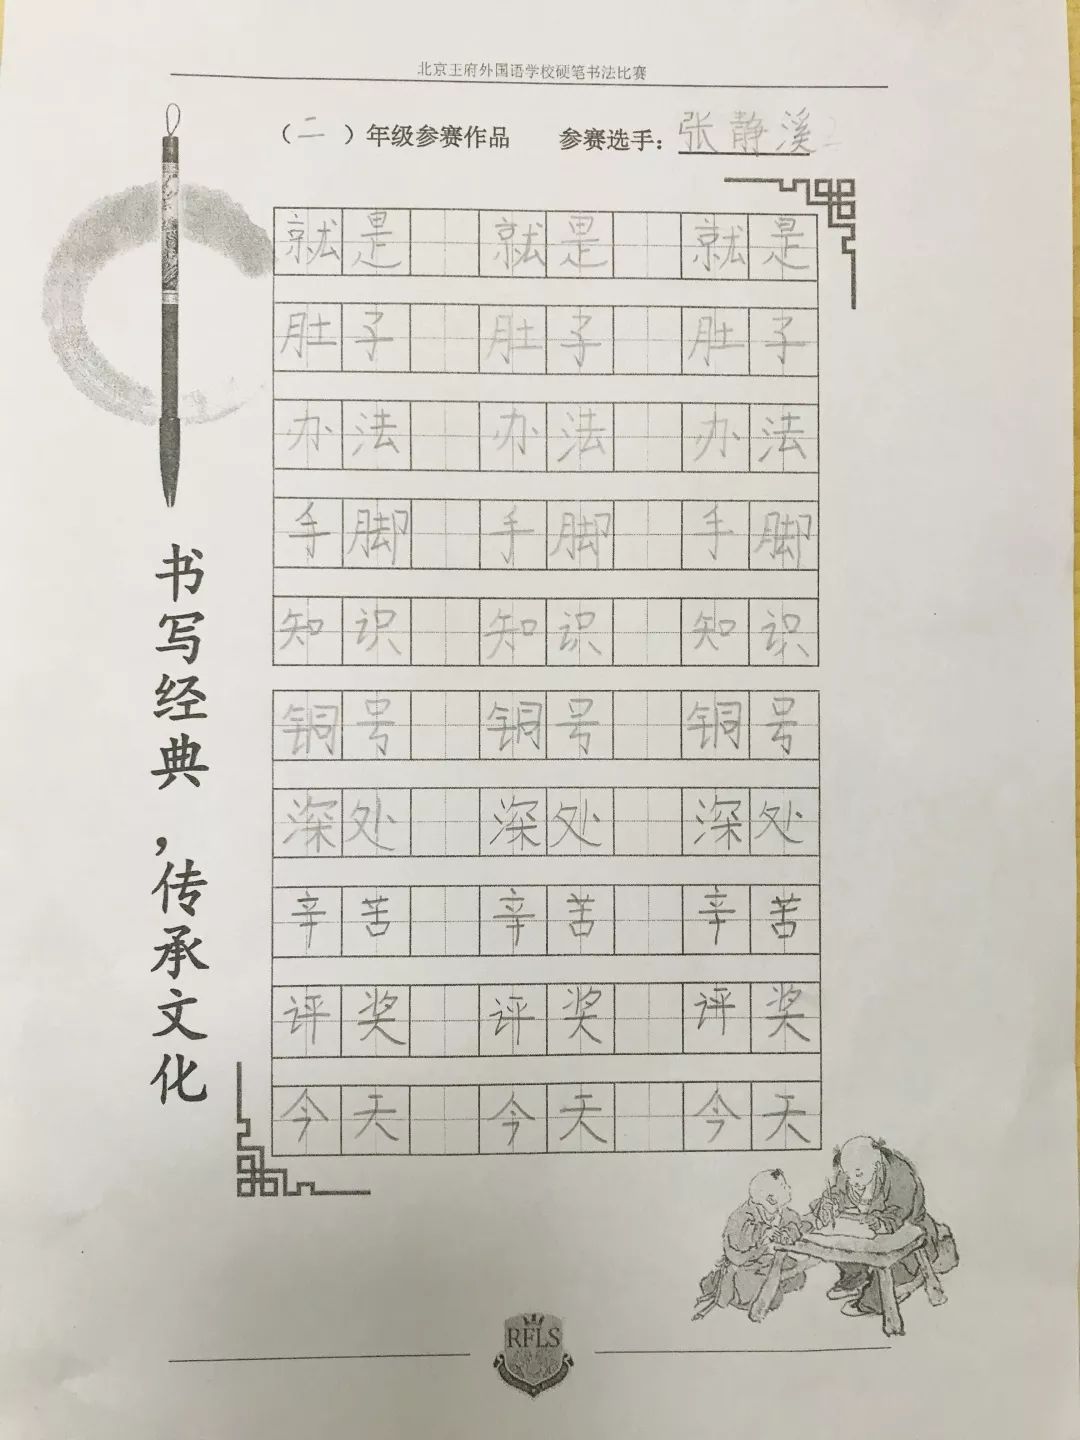 北京王府外国语学校硬笔书法比赛
（二）年级参赛作品 参赛选手：张静溪
就是 就是 就是
肚子 肚子 肚子
办法 办法 办法
手脚 手脚 手脚
知识 知识 知识
铜号 铜号 铜号
深处 深处 深处
辛苦 辛苦 辛苦
评奖 评奖 评奖
今天 今天 今天
书写经典，传承文化
RFLS